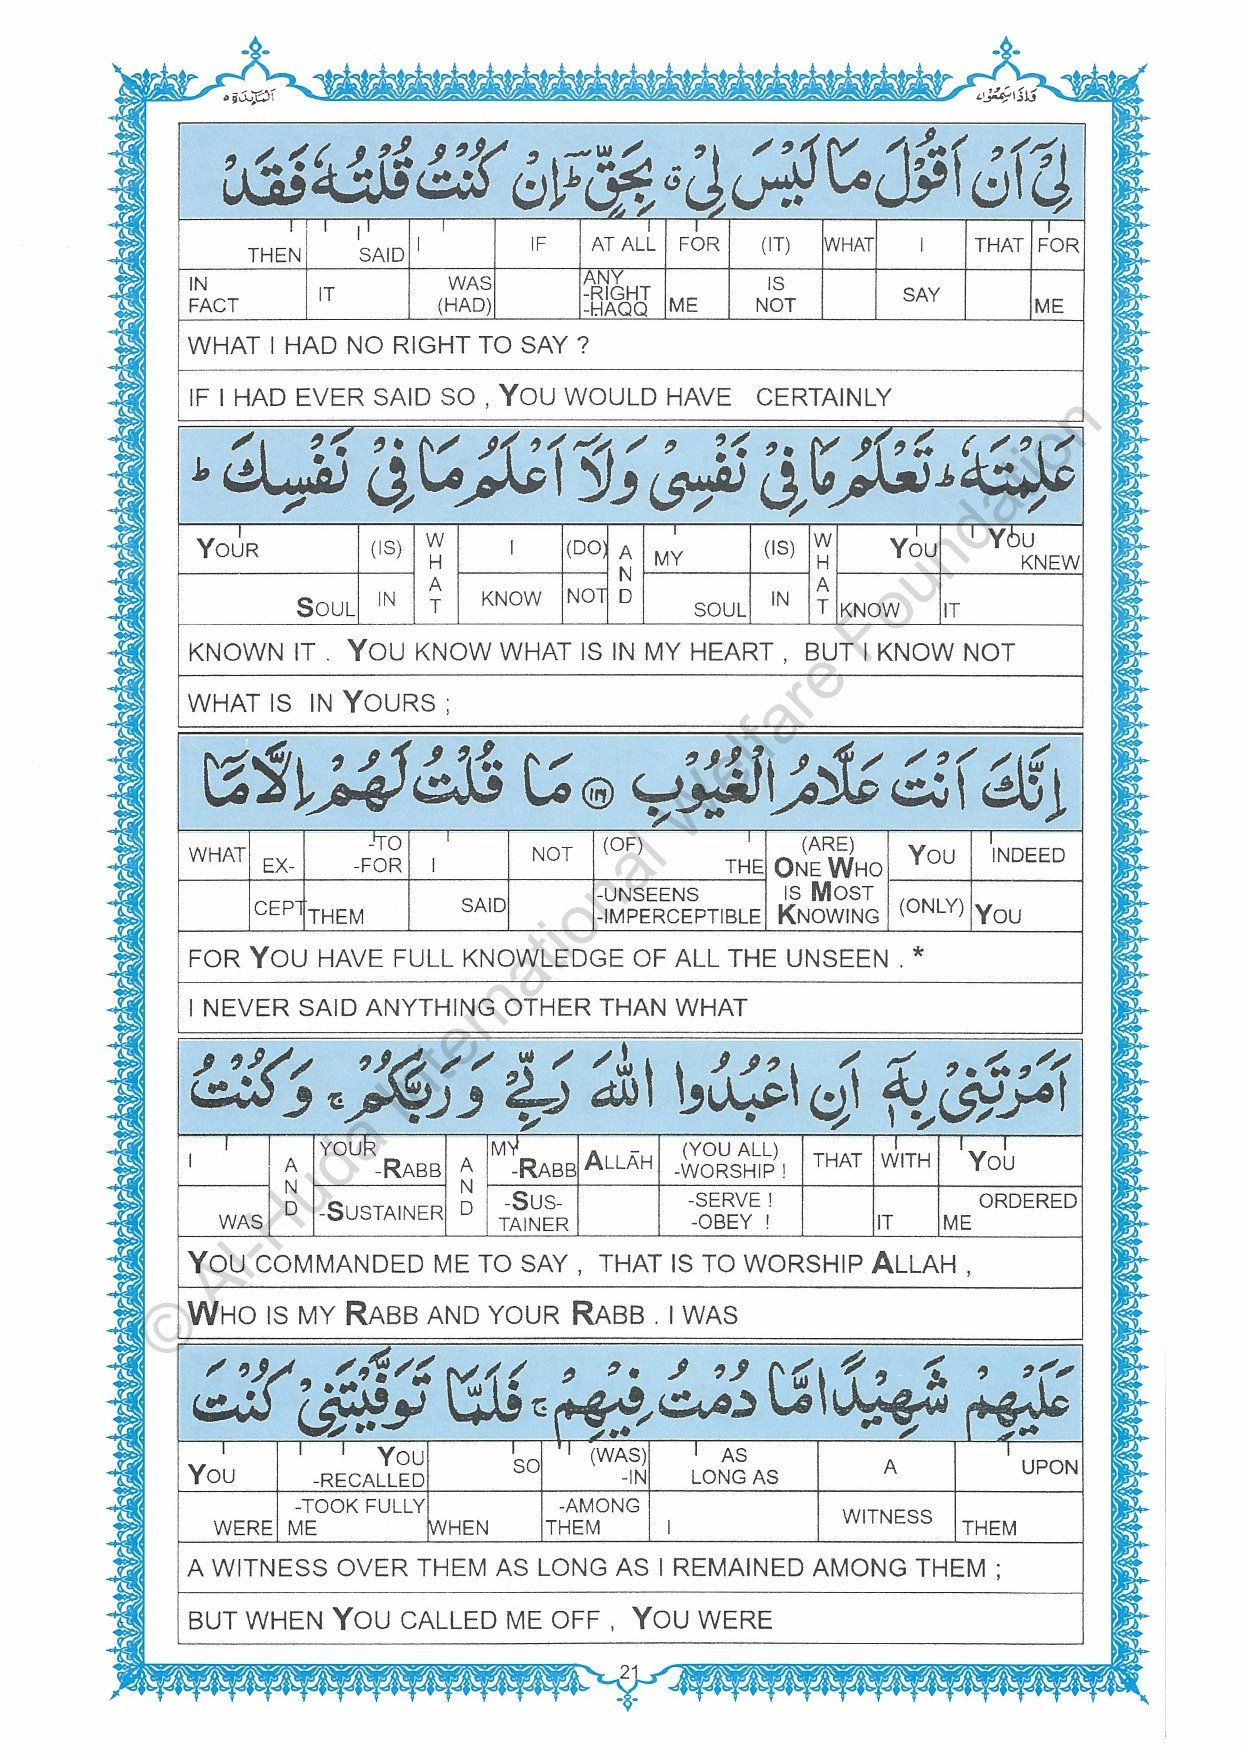 المآئدة ٥
واذا سمعوا ٧
لِیْۤ اَنْ اَقُوْلَ مَا لَیْسَ لِیْ ۗ بِحَقٍّ ؕ اِنْ كُنْتُ قُلْتُهٗ فَقَدْ
THEN SAID I IF AT ALL FOR (IT) WHAT I THAT FOR
IN FACT IT WAS (HAD) ANY -RIGHT -HAQQ ME IS NOT SAY ME
WHAT I HAD NO RIGHT TO SAY ?
IF I HAD EVER SAID SO , YOU WOULD HAVE CERTAINLY
عَلِمْتَهٗ ؕ تَعْلَمُ مَا فِیْ نَفْسِیْ وَلَاۤ اَعْلَمُ مَا فِیْ نَفْسِكَ ؕ
YOUR (IS) WHAT I (DO) AND MY (IS) WHAT YOU YOU KNEW
SOUL IN KNOW NOT SOUL IN KNOW IT
KNOWN IT . YOU KNOW WHAT IS IN MY HEART , BUT I KNOW NOT
WHAT IS IN YOURS ;
اِنَّكَ اَنْتَ عَلَّامُ الْغُیُوْبِ ۝١١٦ مَا قُلْتُ لَهُمْ اِلَّا مَاۤ
WHAT EX- -TO -FOR I NOT (OF) THE (ARE) ONE WHO YOU INDEED
CEPT THEM SAID -UNSEENS -IMPERCEPTIBLE IS MOST KNOWING (ONLY) YOU
FOR YOU HAVE FULL KNOWLEDGE OF ALL THE UNSEEN . *
I NEVER SAID ANYTHING OTHER THAN WHAT
اَمَرْتَنِیْ بِهٖۤ اَنِ اعْبُدُوا اللّٰهَ رَبِّیْ وَرَبَّكُمْ ۚ وَكُنْتُ
I AND YOUR -RABB AND MY -RABB ALLĀH (YOU ALL) -WORSHIP ! THAT WITH YOU
WAS -SUSTAINER -SUS- TAINER -SERVE ! -OBEY ! IT ORDERED ME
YOU COMMANDED ME TO SAY , THAT IS TO WORSHIP ALLAH ,
WHO IS MY RABB AND YOUR RABB . I WAS
عَلَیْهِمْ شَهِیْدًا مَّا دُمْتُ فِیْهِمْ ۚ فَلَمَّا تَوَفَّیْتَنِیْ كُنْتَ
YOU YOU -RECALLED SO (WAS) -IN AS LONG AS A UPON
WERE -TOOK FULLY ME WHEN -AMONG THEM I WITNESS THEM
A WITNESS OVER THEM AS LONG AS I REMAINED AMONG THEM ;
BUT WHEN YOU CALLED ME OFF , YOU WERE
21
© Al-Huda International Welfare Foundation